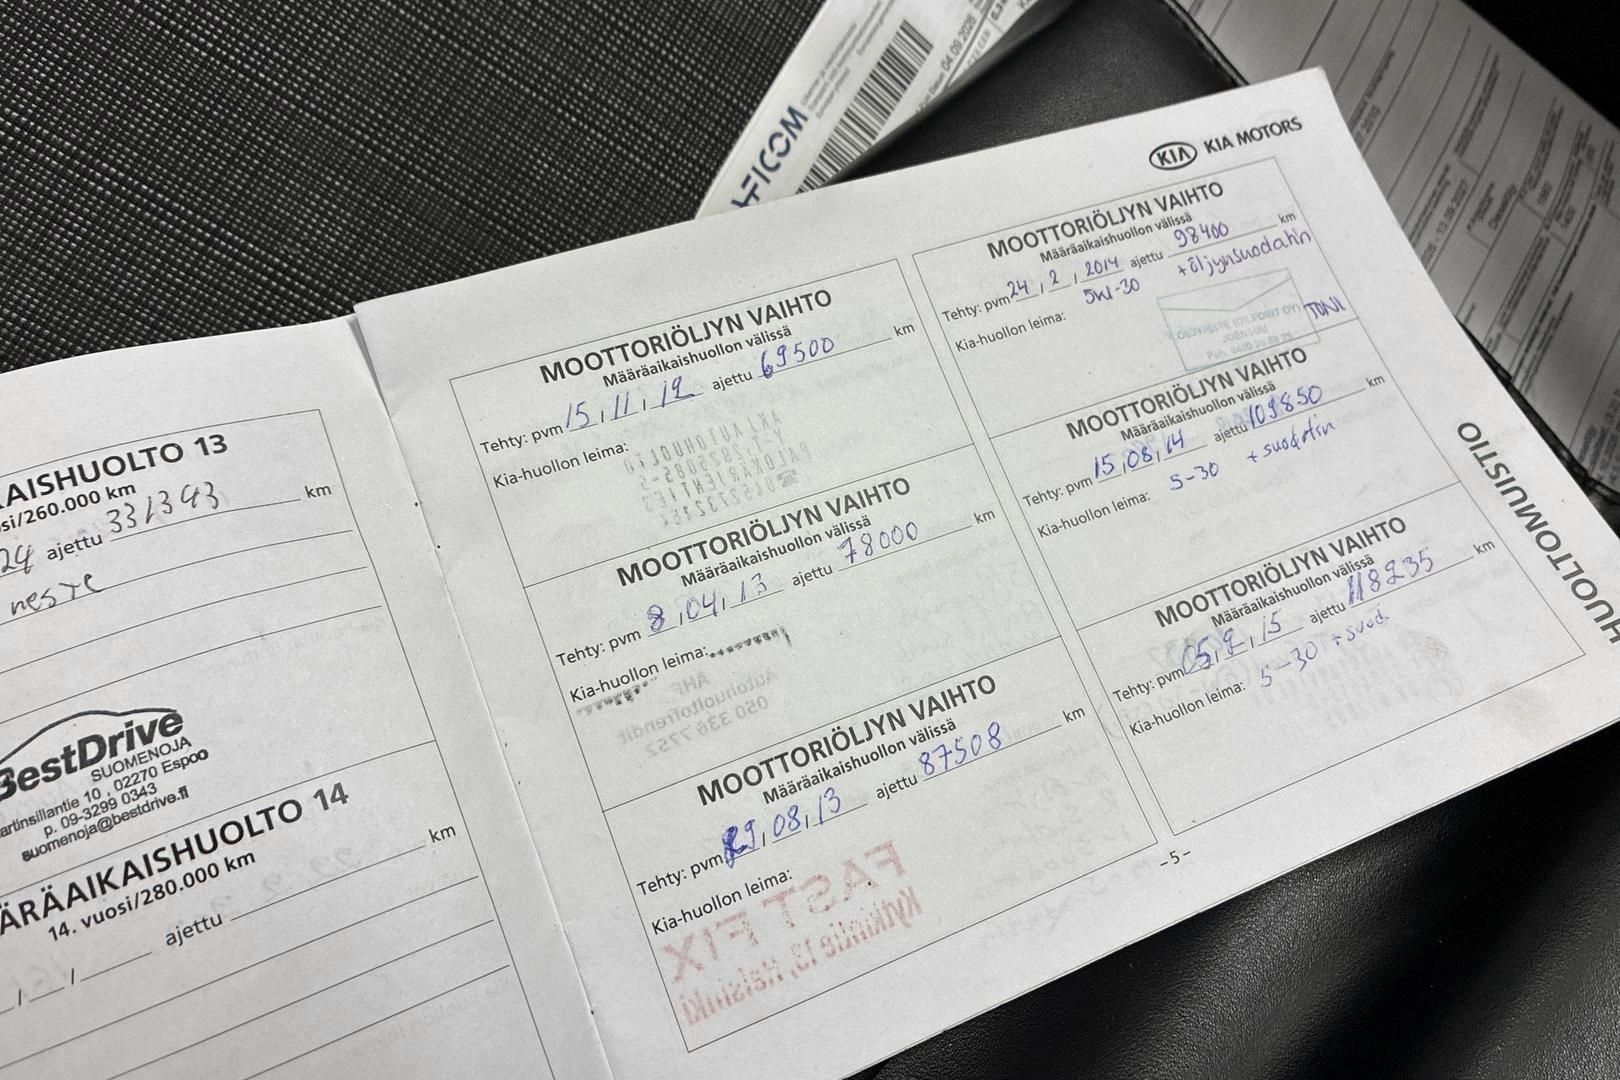 FICOM
04 09 2026
KIA KIA MOTORS
AISHUOLTO 13
si/260.000 km
24 ajettu 331343 km
neste
BestDrive
SUOMENOJA
artinsillantie 10 , 02270 Espoo
p. 09-3299 0343
suomenoja@bestdrive.fi
ÄRÄAIKAISHUOLTO 14
14. vuosi/280.000 km
/ / ajettu km
MOOTTORIÖLJYN VAIHTO
Määräaikaishuollon välissä
Tehty: pvm 15, 11, 12 ajettu 69500 km
Kia-huollon leima:
MOOTTORIÖLJYN VAIHTO
Määräaikaishuollon välissä
Tehty: pvm 8,04, 13 ajettu 78000 km
Kia-huollon leima:
AHF
Autohuoltofrendit
050 336 7752
MOOTTORIÖLJYN VAIHTO
Määräaikaishuollon välissä
Tehty: pvm 29, 08, 13 ajettu 87508 km
Kia-huollon leima:
FAST FIX
Kytkintie 13, Helsinki
MOOTTORIÖLJYN VAIHTO
Määräaikaishuollon välissä
Tehty: pvm 24, 2, 2014 ajettu 98400 km
5W-30 + öljynsuodatin
Kia-huollon leima:
JOENSUU
TONI
MOOTTORIÖLJYN VAIHTO
Määräaikaishuollon välissä
Tehty: pvm 15,08,14 ajettu 109850 km
Kia-huollon leima: 5-30 + suodatin
MOOTTORIÖLJYN VAIHTO
Määräaikaishuollon välissä
Tehty: pvm 05,2, 15 ajettu 118235 km
Kia-huollon leima: 5-30 + suod.
-5-
HUOLTOMUISTIO